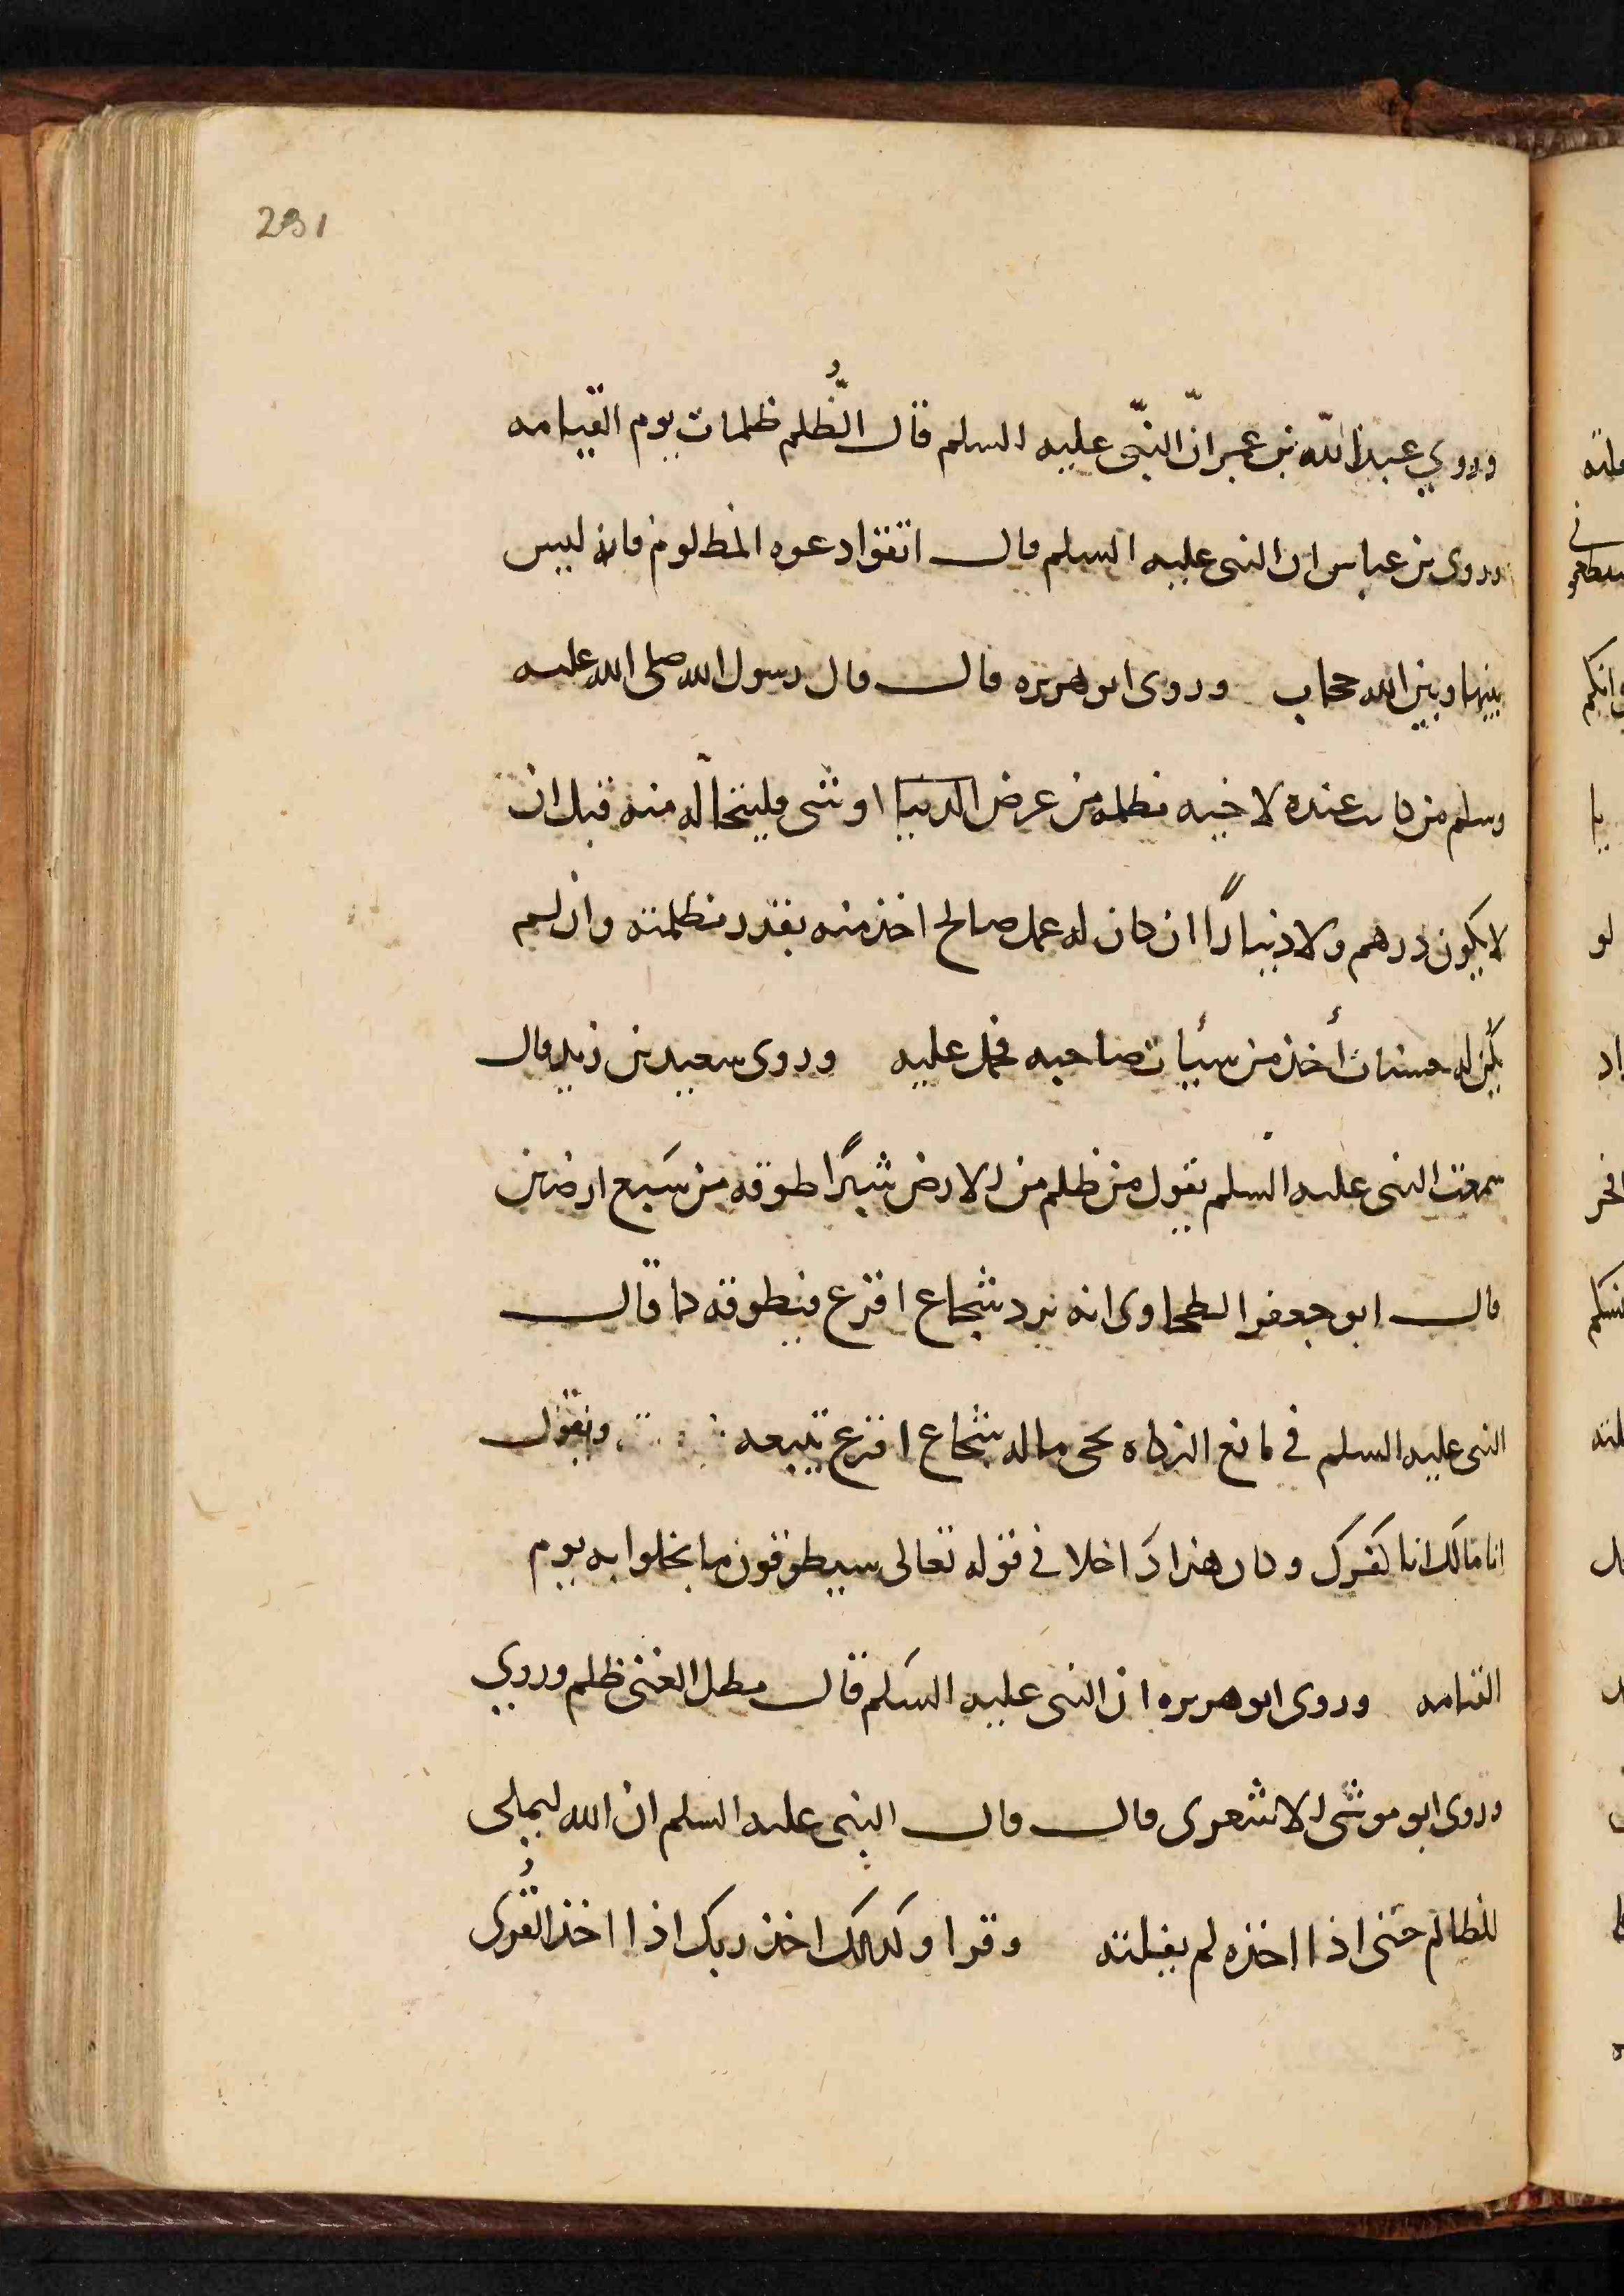 231
وروي عبد الله بن عمر انّ النبّي عليه السلم قال الظُّلم ظلمات يوم القيامه
وروى بن عباس ان النبي عليه السلم قال اتقوا دعوه المظلوم فانه ليس
بينها وبين الله حجاب وروى ابو هريره قال قال رسول الله صلى الله عليه
وسلم من كانت عنده لاخيه مظلمه من عرض الدنيا او شي فليتحالّه منه قبل ان
لا يكون درهم ولا دينارًا ان كان له عمل صالح اخذ منه بقدر مظلمته وان لم
يكن له حسنات أُخذ من سيئات صاحبه فحمل عليه وروى سعيد بن زيد قال
سمعت النبي عليه السلم يقول من ظلم من الارض شبرًا طوقه من سبع ارضين
قال ابو جعفر الطحاوى انه يرد شجاع اقرع فيطوقه كما قال
النبي عليه السلم في مانع الزكاه يجى ماله شجاع اقرع يتبعه ويقول
انا مالك انا كنزك وكان هذا دَاخلا في قوله تعالى سيطوقون ما بخلوا به يوم
القيامه وروى ابو هريره ان النبي عليه السَلم قال مطل الغنى ظلم وروي
وروى ابو موسى الاشعرى قال قال النبى عليه السلم ان الله ليملى
للظالم حتى اذا اخذه لم يفلته وقرا وكذلك اخذ ربك اذا اخذ القُرى